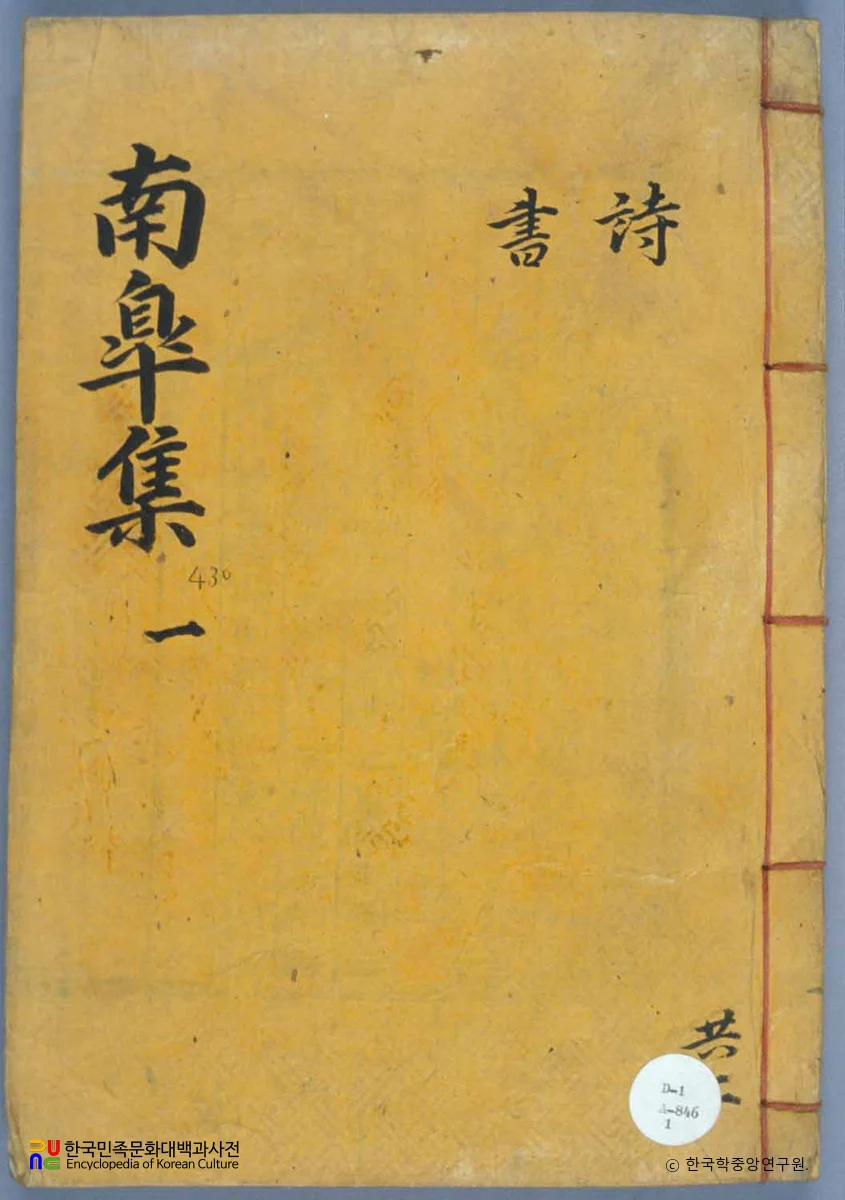 詩
書
南皐集
一
430
共
D-1
A-846
1
한국민족문화대백과사전
Encyclopedia of Korean Culture
ⓒ 한국학중앙연구원.